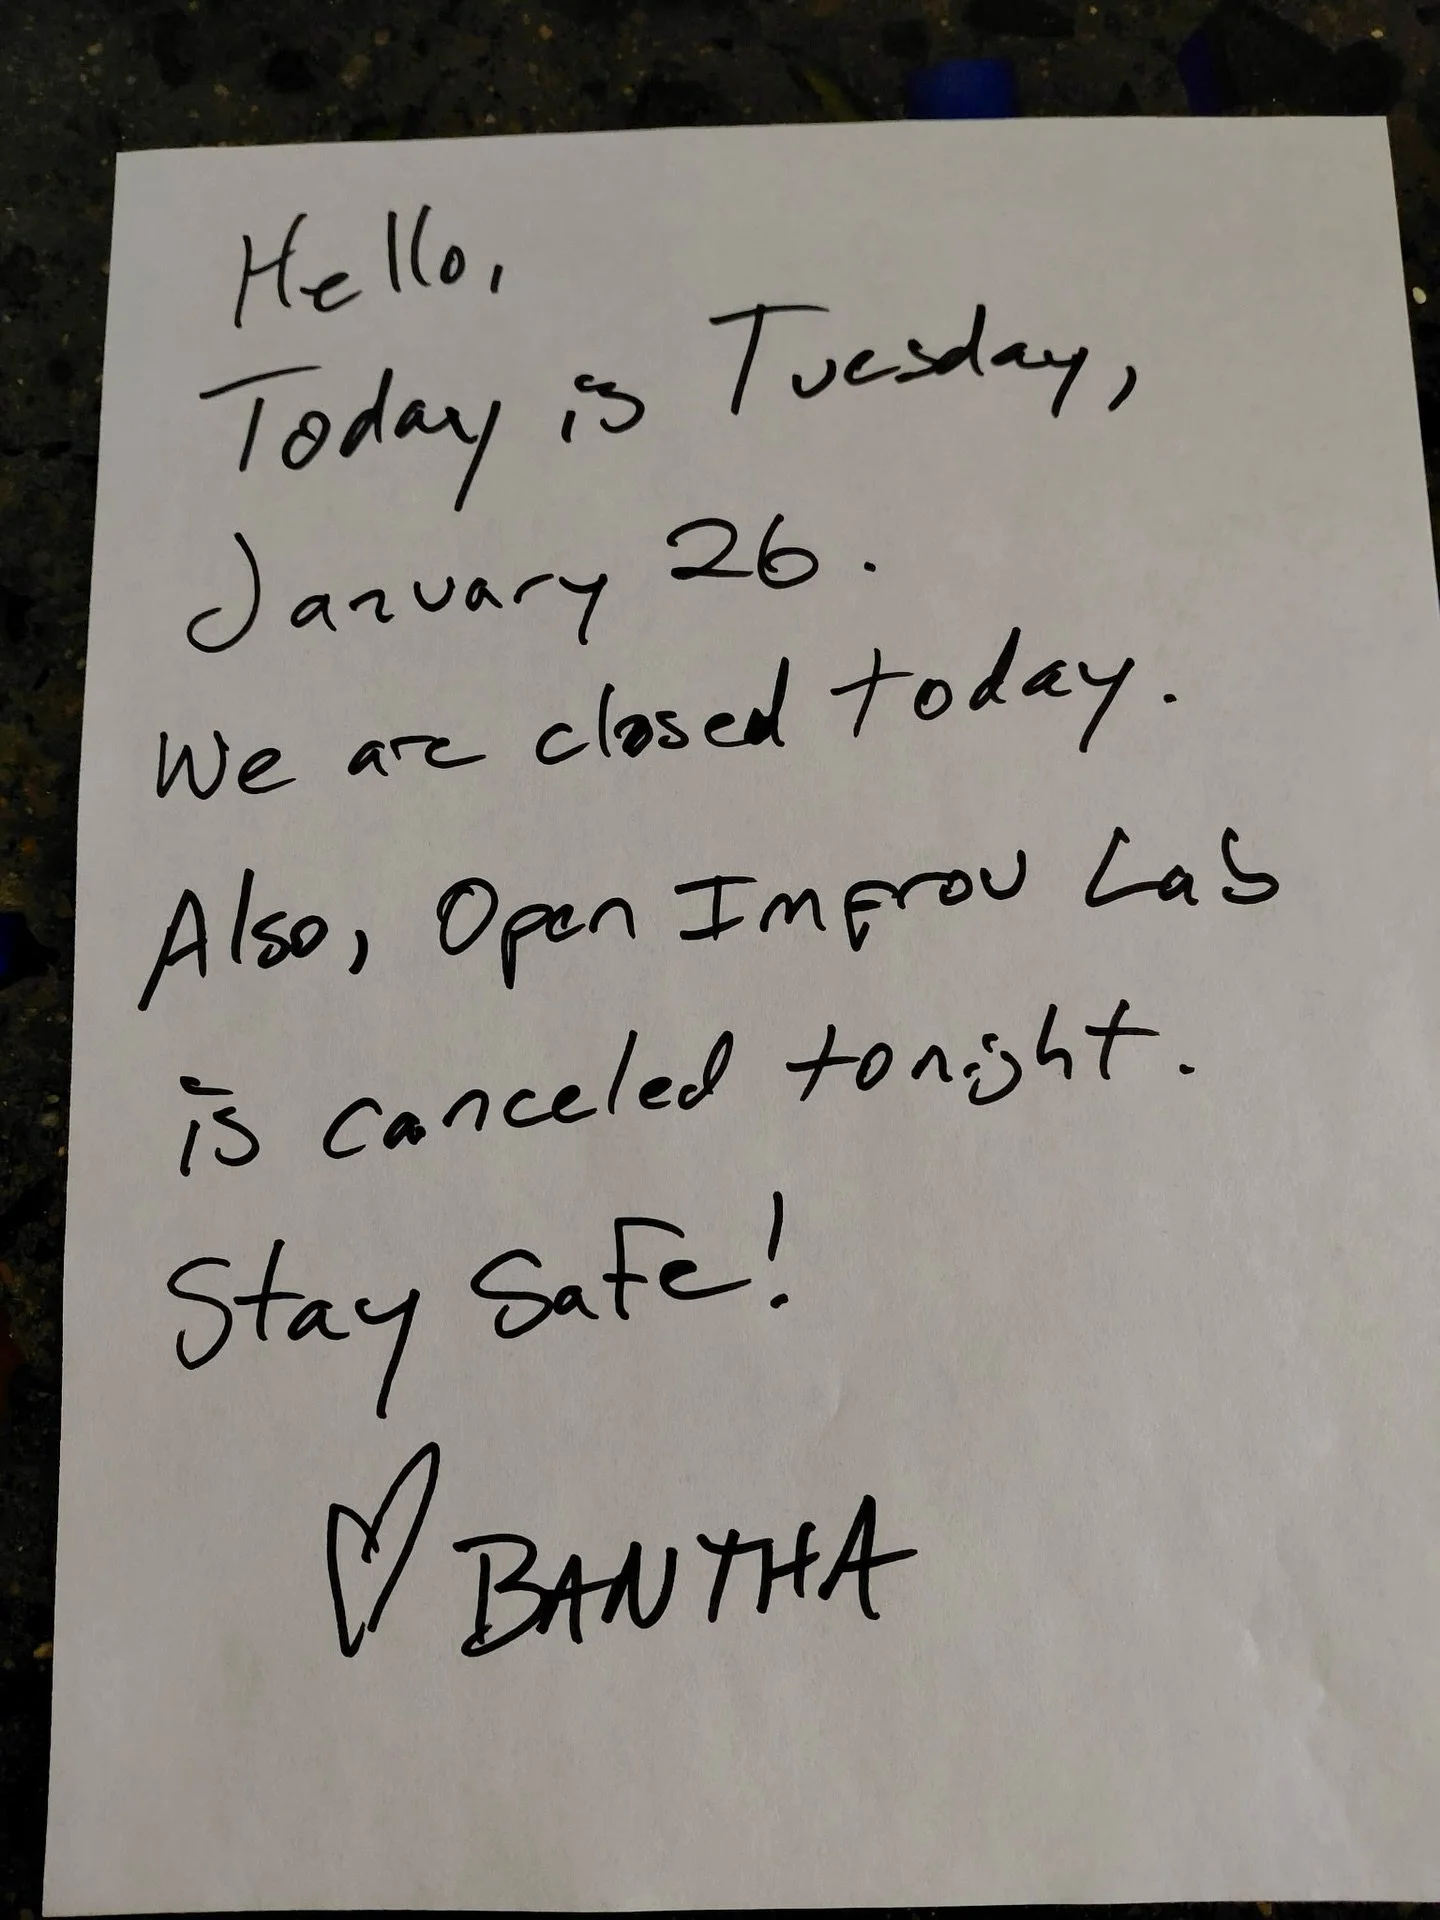 Hello,
Today is Tuesday,
January 26.
We are closed today.
Also, Open Improv Lab
is canceled tonight.
Stay Safe!
♡ BANTHA